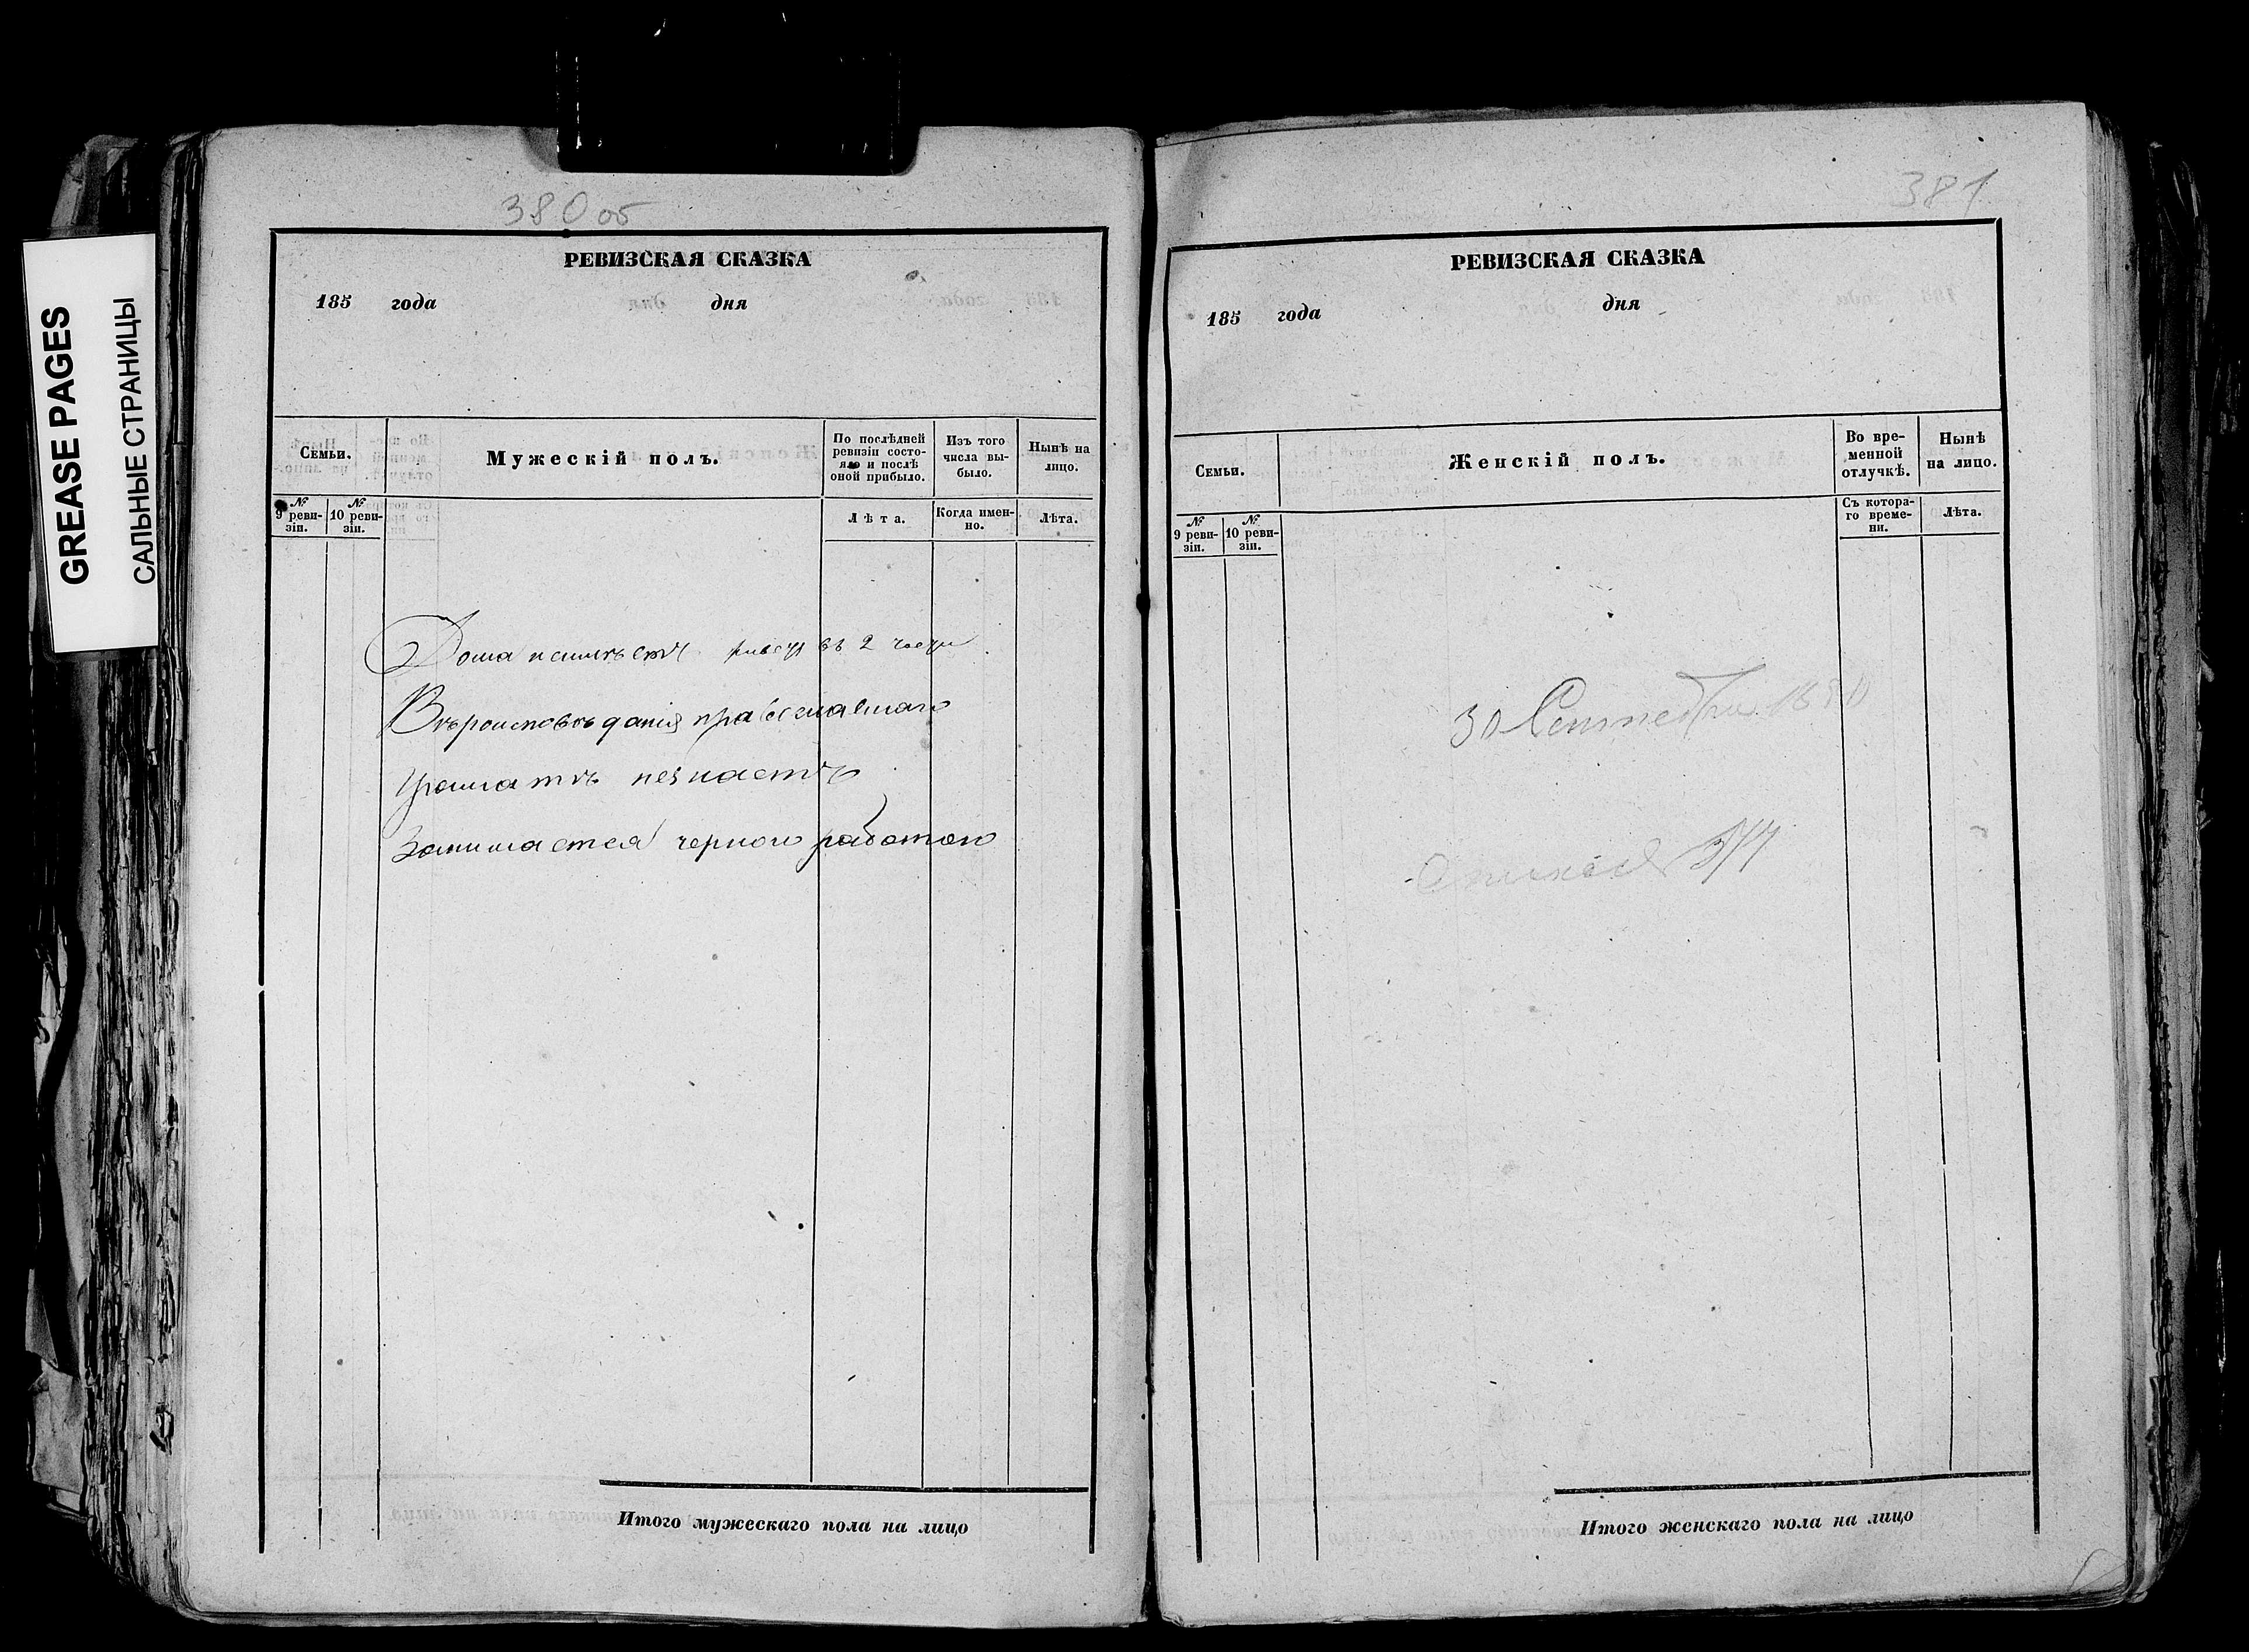 GREASE PAGES
САЛЬНЫЕ СТРАНИЦЫ
380 об
РЕВИЗСКАЯ СКАЗКА
185 года дня
Семьи.
Мужескій полъ.
По послѣдней ревизіи состо-
яло и послѣ оной прибыло.
Изъ того числа вы-
было.
Нынѣ на лицо.
№ 9 реви-
зіи.
№ 10 реви-
зіи.
Лѣта.
Когда имен-
но.
Лѣта.
Дома неимѣетъ живетъ въ 2 части
Вѣроисповѣданія православнаго
Граматѣ незнаетъ
Занимается черною работою
Итого мужескаго пола на лицо
381
РЕВИЗСКАЯ СКАЗКА
185 года дня
Семьи.
Женскій полъ.
Во вре-
менной
отлучкѣ.
Нынѣ
на лицо.
№ 9 реви-
зіи.
№ 10 реви-
зіи.
Съ котора-
го време-
ни.
Лѣта.
30 Сентября
Итого женскаго пола на лицо